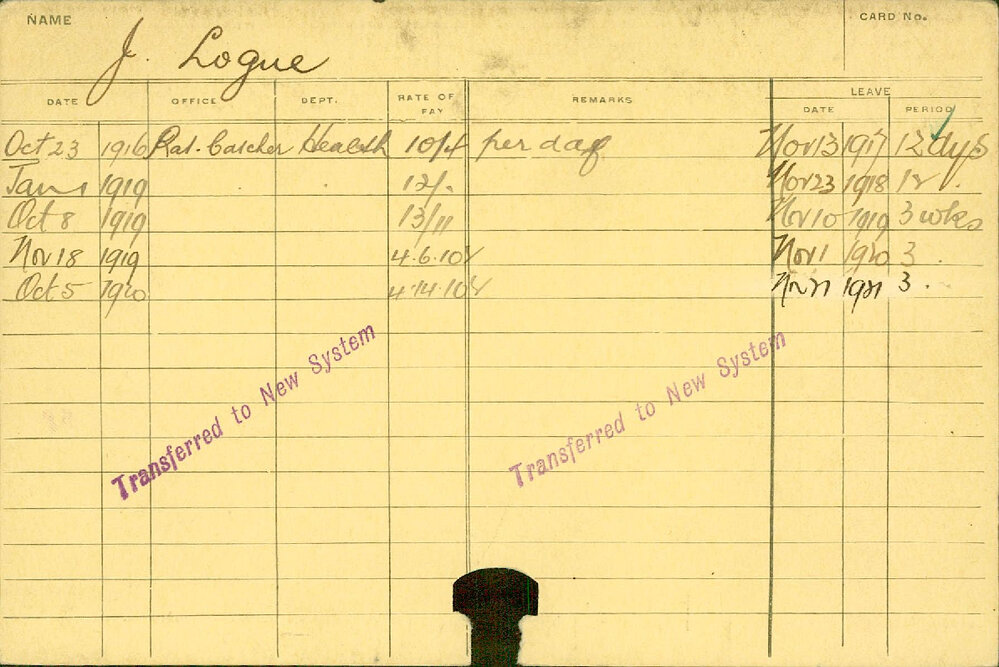 NAME
CARD No.
J. Logue
DATE OFFICE DEPT. RATE OF PAY REMARKS LEAVE DATE PERIOD
Oct 23 1916 Rat. Catcher Health 10/4 per day Nov 13 1917 12 dys
Jan 1 1919 12/. Nov 23 1918 12 .
Oct 8 1919 13/11 Nov 10 1919 3 wks
Nov 18 1919 4.6.10 Nov 1 1920 3 .
Oct 5 1920 4.14.10 1921 3 .
Transferred to New System
Transferred to New System